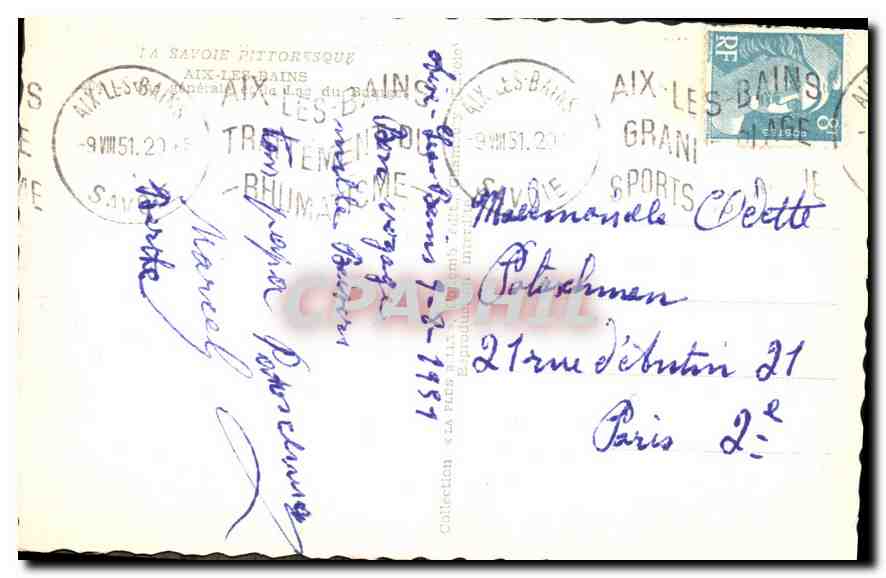 LA SAVOIE PITTORESQUE
AIX-LES-BAINS
générale Lac du Bourget
AIX-LES-BAINS
-9 VIII 51.20
SAVOIE
AIX-LES-BAINS
TRAITEMENT DU
RHUMATISME
AIX-LES-BAINS
-9 VIII 51.20
SAVOIE
AIX-LES-BAINS
GRAND
PLAGE
SPORTS
RF
POSTES
8F
Aix-les-Bains 9-8-1951
Bon voyage
mille Baisers
ton papa
Marcel
Berthe
Collection « LA PLUS BELLE »
Reproduction interdite
Mademoiselle Odette
Potaschman
21 rue d'Abutin 21
Paris 2e
CPAPHIL